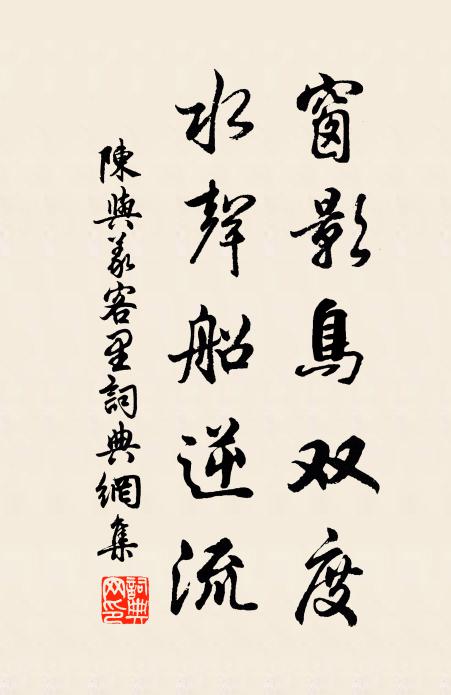 窗影鳥双度
水聲船逆流
陳與義客里詞典網集
詞典
网印